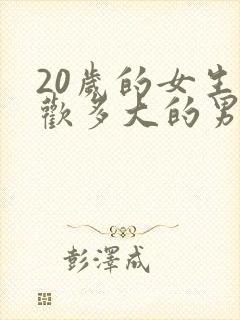 20歲的女生
歡多大的男
彭澤成